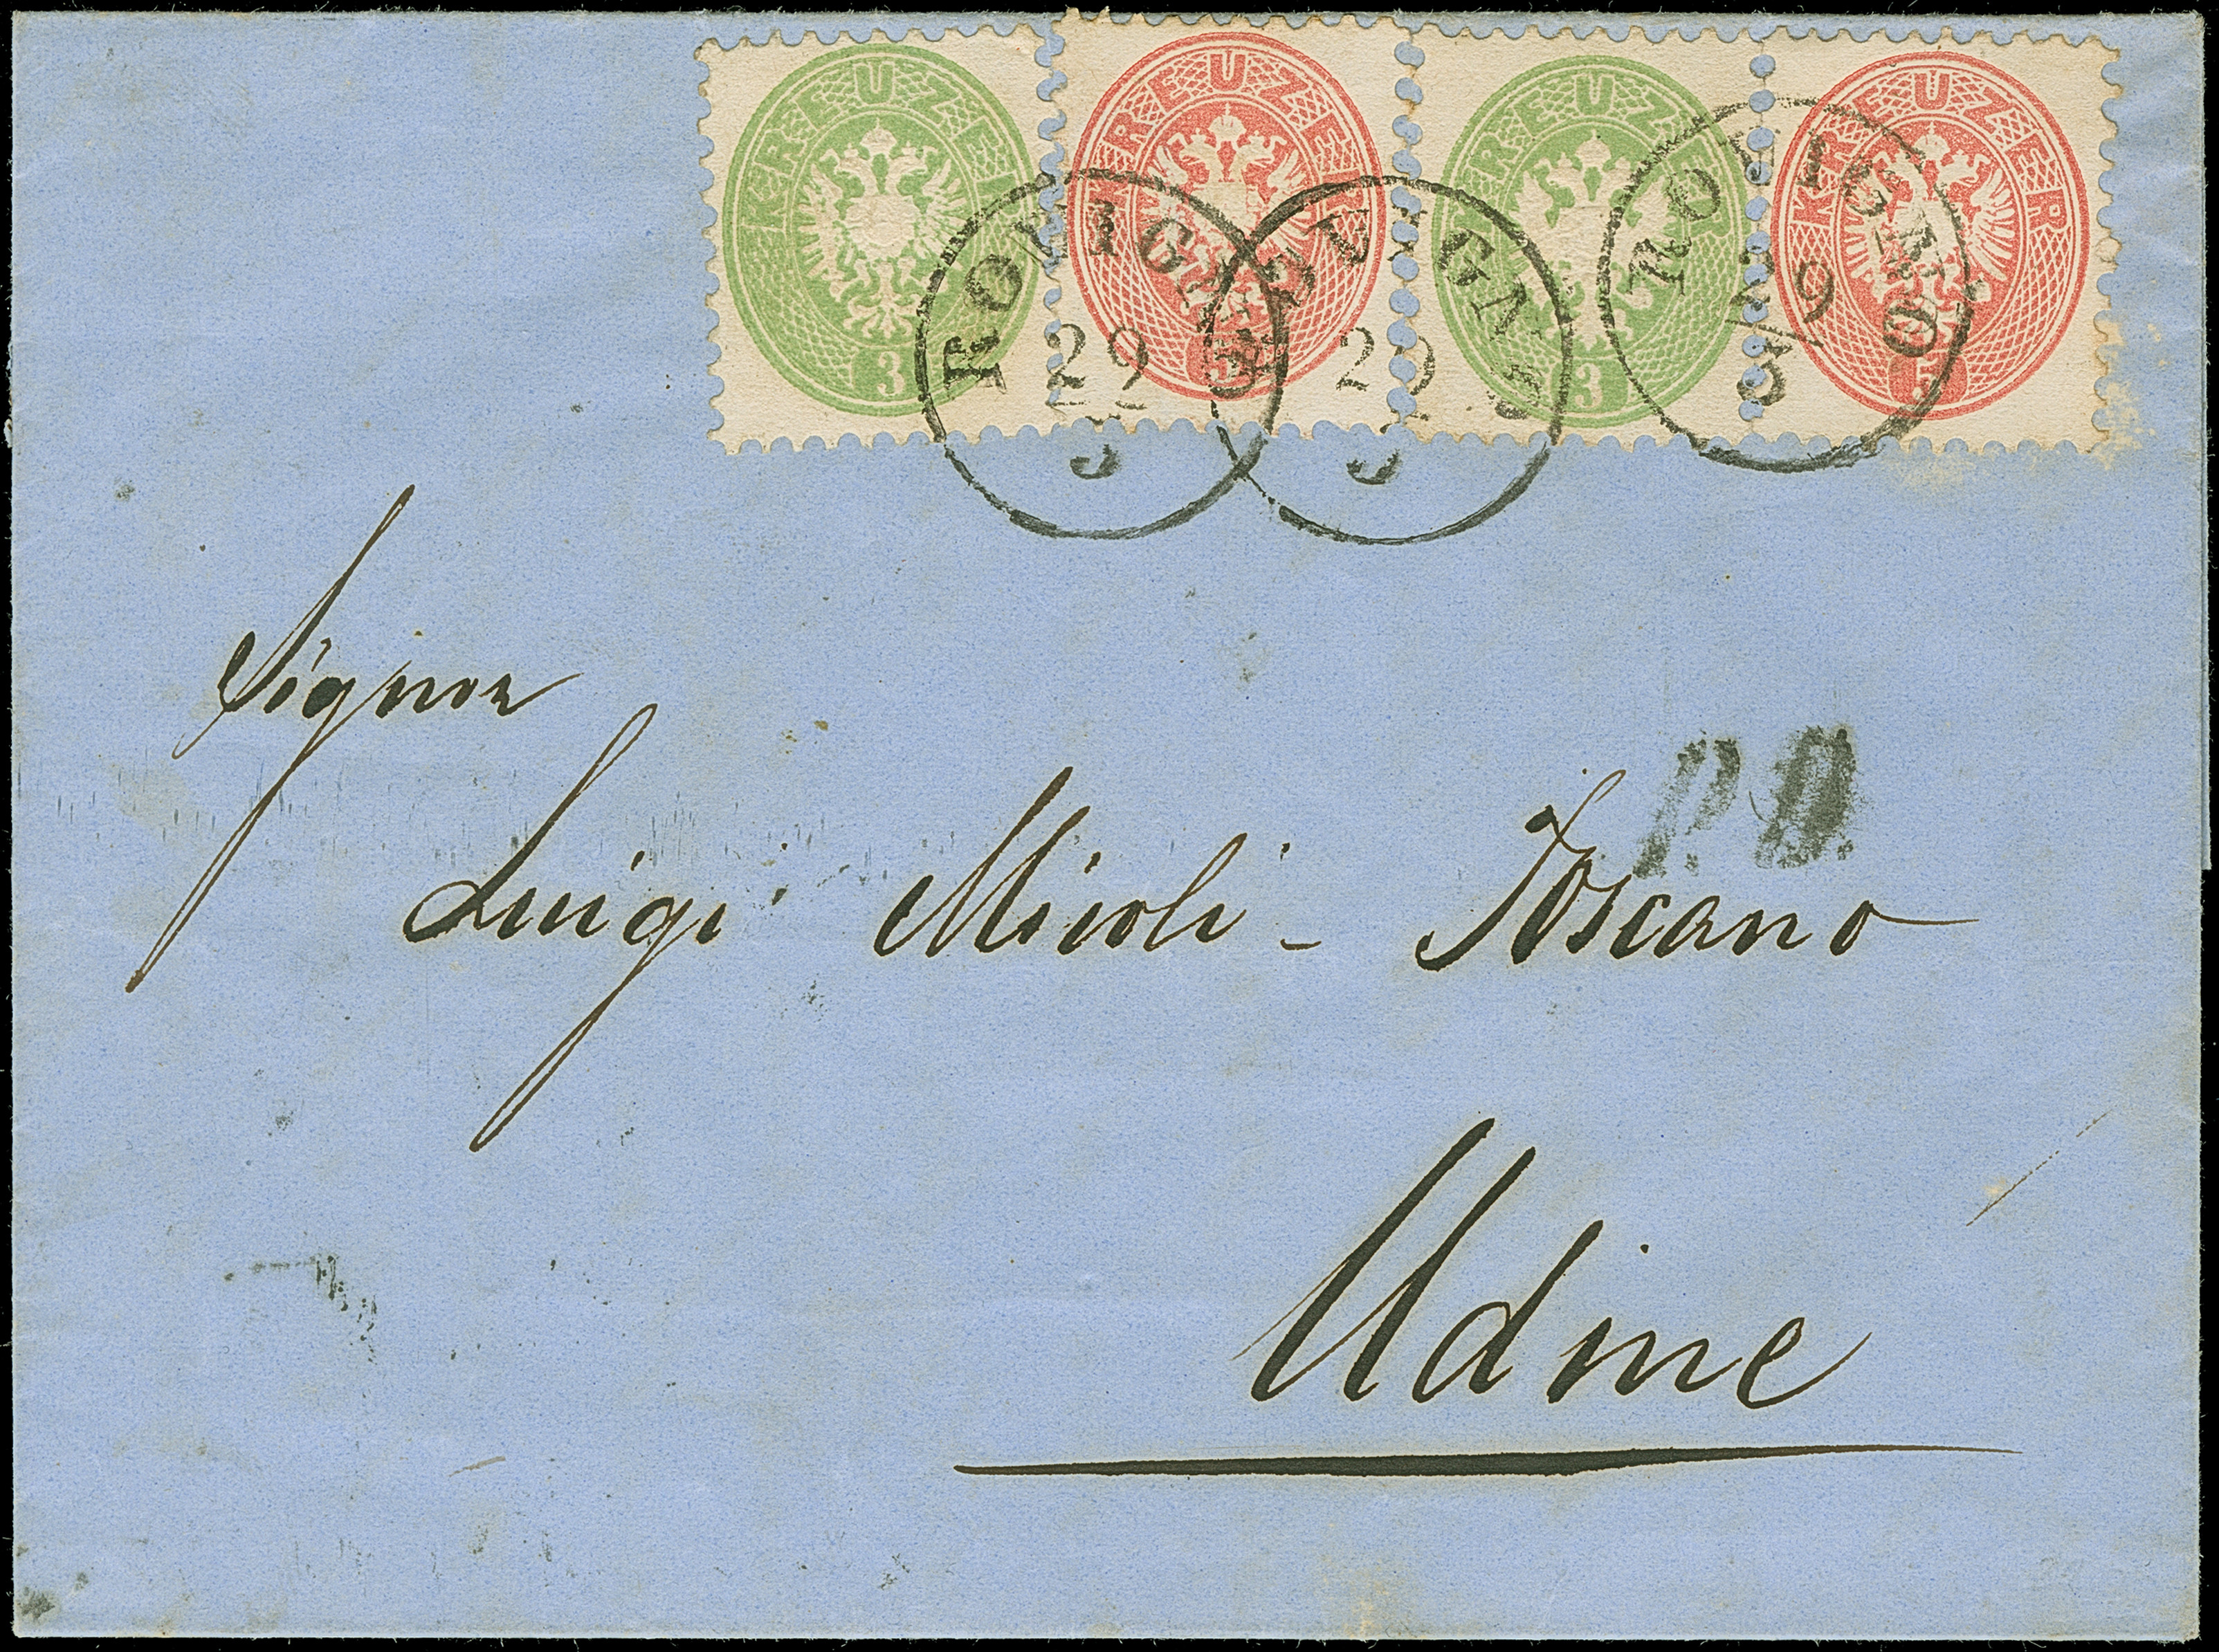 KREUZER 3
KREUZER 5
KREUZER 3
KREUZER 5
ROVIGNO 29 3
ROVIGNO 29 3
ROVIGNO 29 3
Signor
P.D.
Luigi Micoli - Toscano
Udine